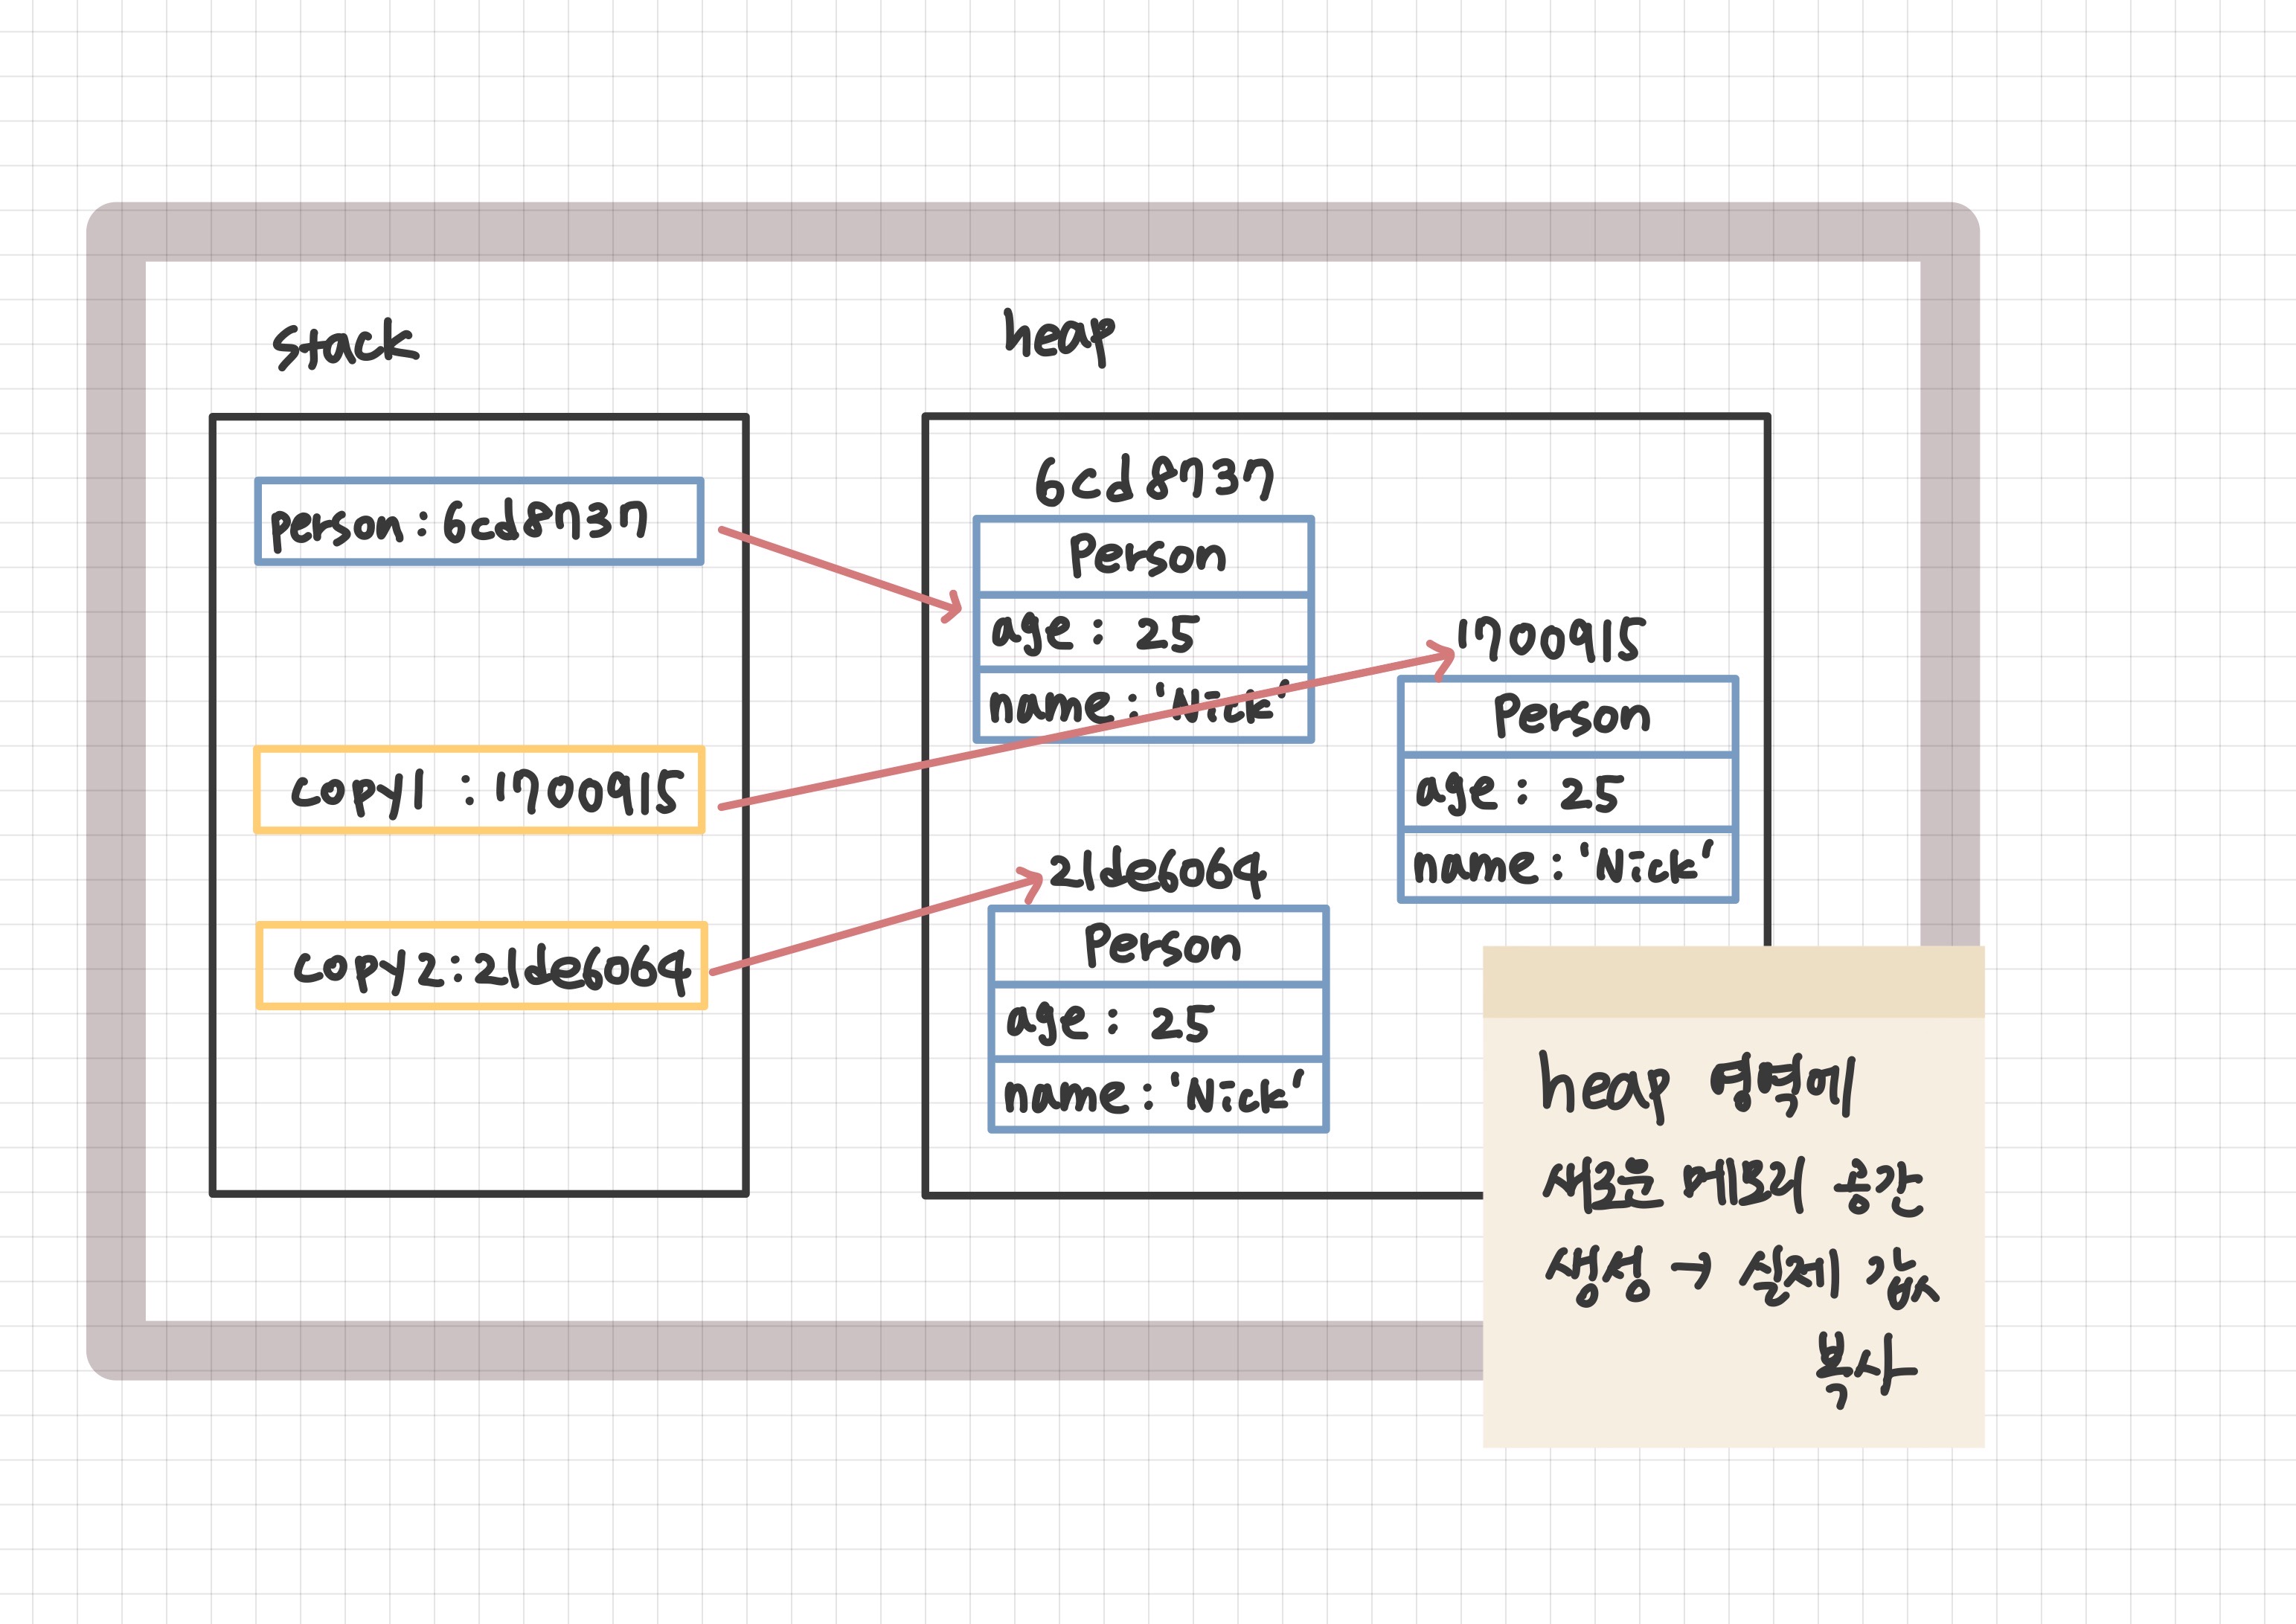 stack
heap
person : 6cd8737
copy1 : 1700915
copy2 : 21de6064
6cd8737
Person
age : 25
name : 'Nick'
1700915
Person
age : 25
name : 'Nick'
21de6064
Person
age : 25
name : 'Nick'
heap 영역에
새로운 메모리 공간
생성 → 실제 값
복사